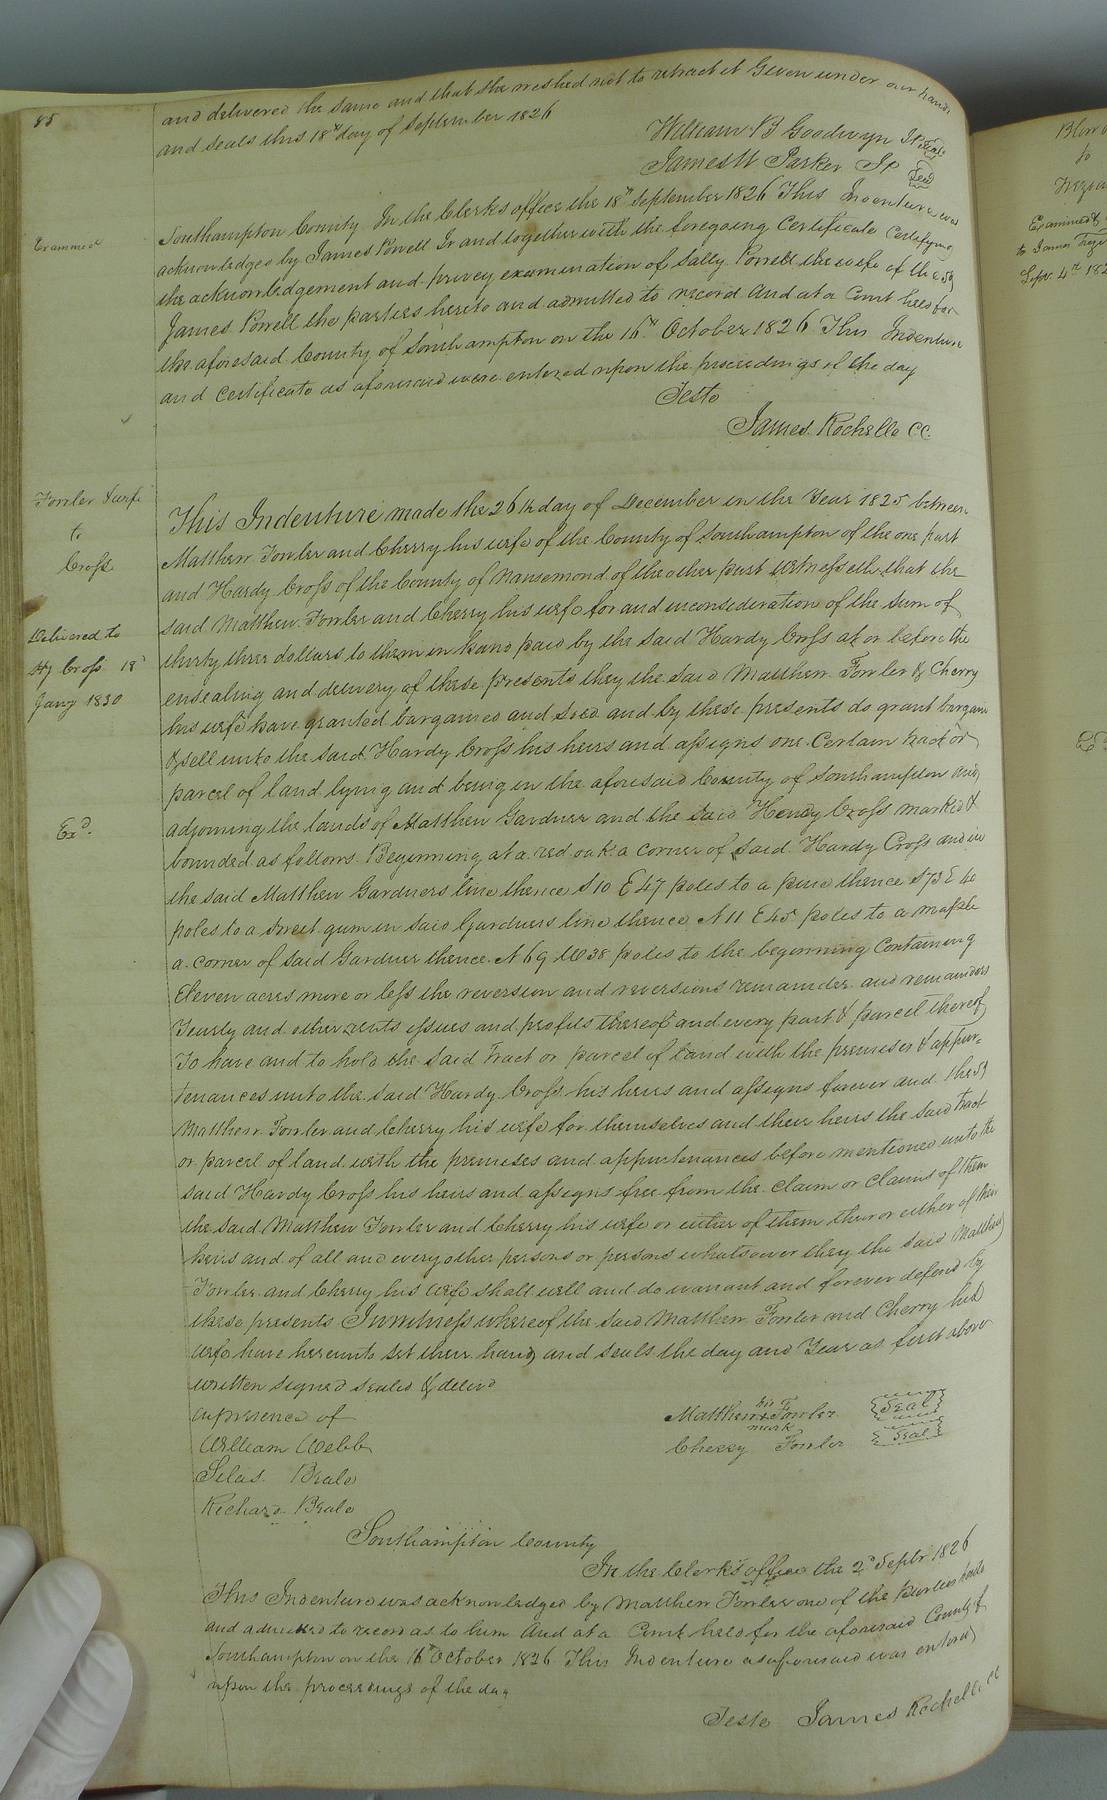 85
and delivered the same and that she wished not to retract it Given under our hands
and seals this 18th day of September 1826
William B Goodwyn JP Seal
James W Parker JP Seal
Examined
Southampton County In the Clerks office the 18th September 1826 This Indenture was
acknowledged by James Powell Jr and together with the foregoing Certificate Certifying
the acknowledgement and privey examination of Sally Powell the wife of the sd
James Powell the parties hereto and admitted to record And at a Court held for
the aforesaid County of Southampton on the 16th October 1826 This Indenture
and Certificate as aforesaid were entered upon the proceedings of the day
Teste
James Rochelle CC.
Fowler & wife
to
Cross
Delivered to
Hy Cross 18th
Jany 1830
Exd.
This Indenture made the 26th day of December in the Year 1825 between
Matthew Fowler and Cherry his wife of the County of Southampton of the one part
and Hardy Cross of the County of Nansemond of the other part witnesseth that the
said Matthew Fowler and Cherry his wife for and inconsideration of the Sum of
thirty three dollars to them in hand paid by the said Hardy Cross at or before the
ensealing and delivery of these presents they the said Matthew Fowler & Cherry
his wife have granted bargained and sold and by these presents do grant bargain
& sell unto the said Hardy Cross his heirs and assigns one Certain tract or
parcel of land lying and being in the aforesaid County of Southampton and
adjoining the lands of Matthew Gardner and the said Hendy Cross marked &
bounded as follows. Beginning at a red oak a corner of said Hardy Cross and in
the said Matthew Gardners line thence S 10 E 47 poles to a pine thence S 73 E 40
poles to a Sweet gum in said Gardners line thence N 11 E 45 poles to a maple
a corner of said Gardner thence N 69 W 38 poles to the beginning Containing
Eleven acres more or less the reversion and reversions remainder and remainders
Yearly and other rents issues and profits thereof and every part & parcel thereof
To have and to hold the said tract or parcel of land with the premises & appur-
tenances unto the said Hardy Cross his heirs and assigns forever and the sd
Matthew Fowler and Cherry his wife for themselves and their heirs the said tract
or parcel of land with the premises and appurtenances before mentioned unto the
said Hardy Cross his heirs and assigns free from the Claim or Claims of them
the said Matthew Fowler and Cherry his wife or either of them their or either of their
heirs and of all and every other persons or persons whatsoever they the said Matthew
Fowler and Cherry his wife shall well and do warrant and forever defend by
these presents Inwitness whereof the said Matthew Fowler and Cherry his
wife have hereunto set their hands and seals the day and Year as first above
written signed sealed & delivd
inpresence of
William Webb
Silas Beale
Richard Beale
his
Matthew x Fowler Seal
mark
Cherry Fowler Seal
Southampton County
In the Clerk's office the 2d Septr 1826
This Indenture was acknowledged by Matthew Fowler one of the parties hereto
and admitted to record as to him And at a Court held for the aforesaid County of
Southampton on the 16th October 1826 This Indenture as aforesaid was entered
upon the proceedings of the day
Teste James Rochelle CC
to
Examined &
to James
Sept. 4th 182